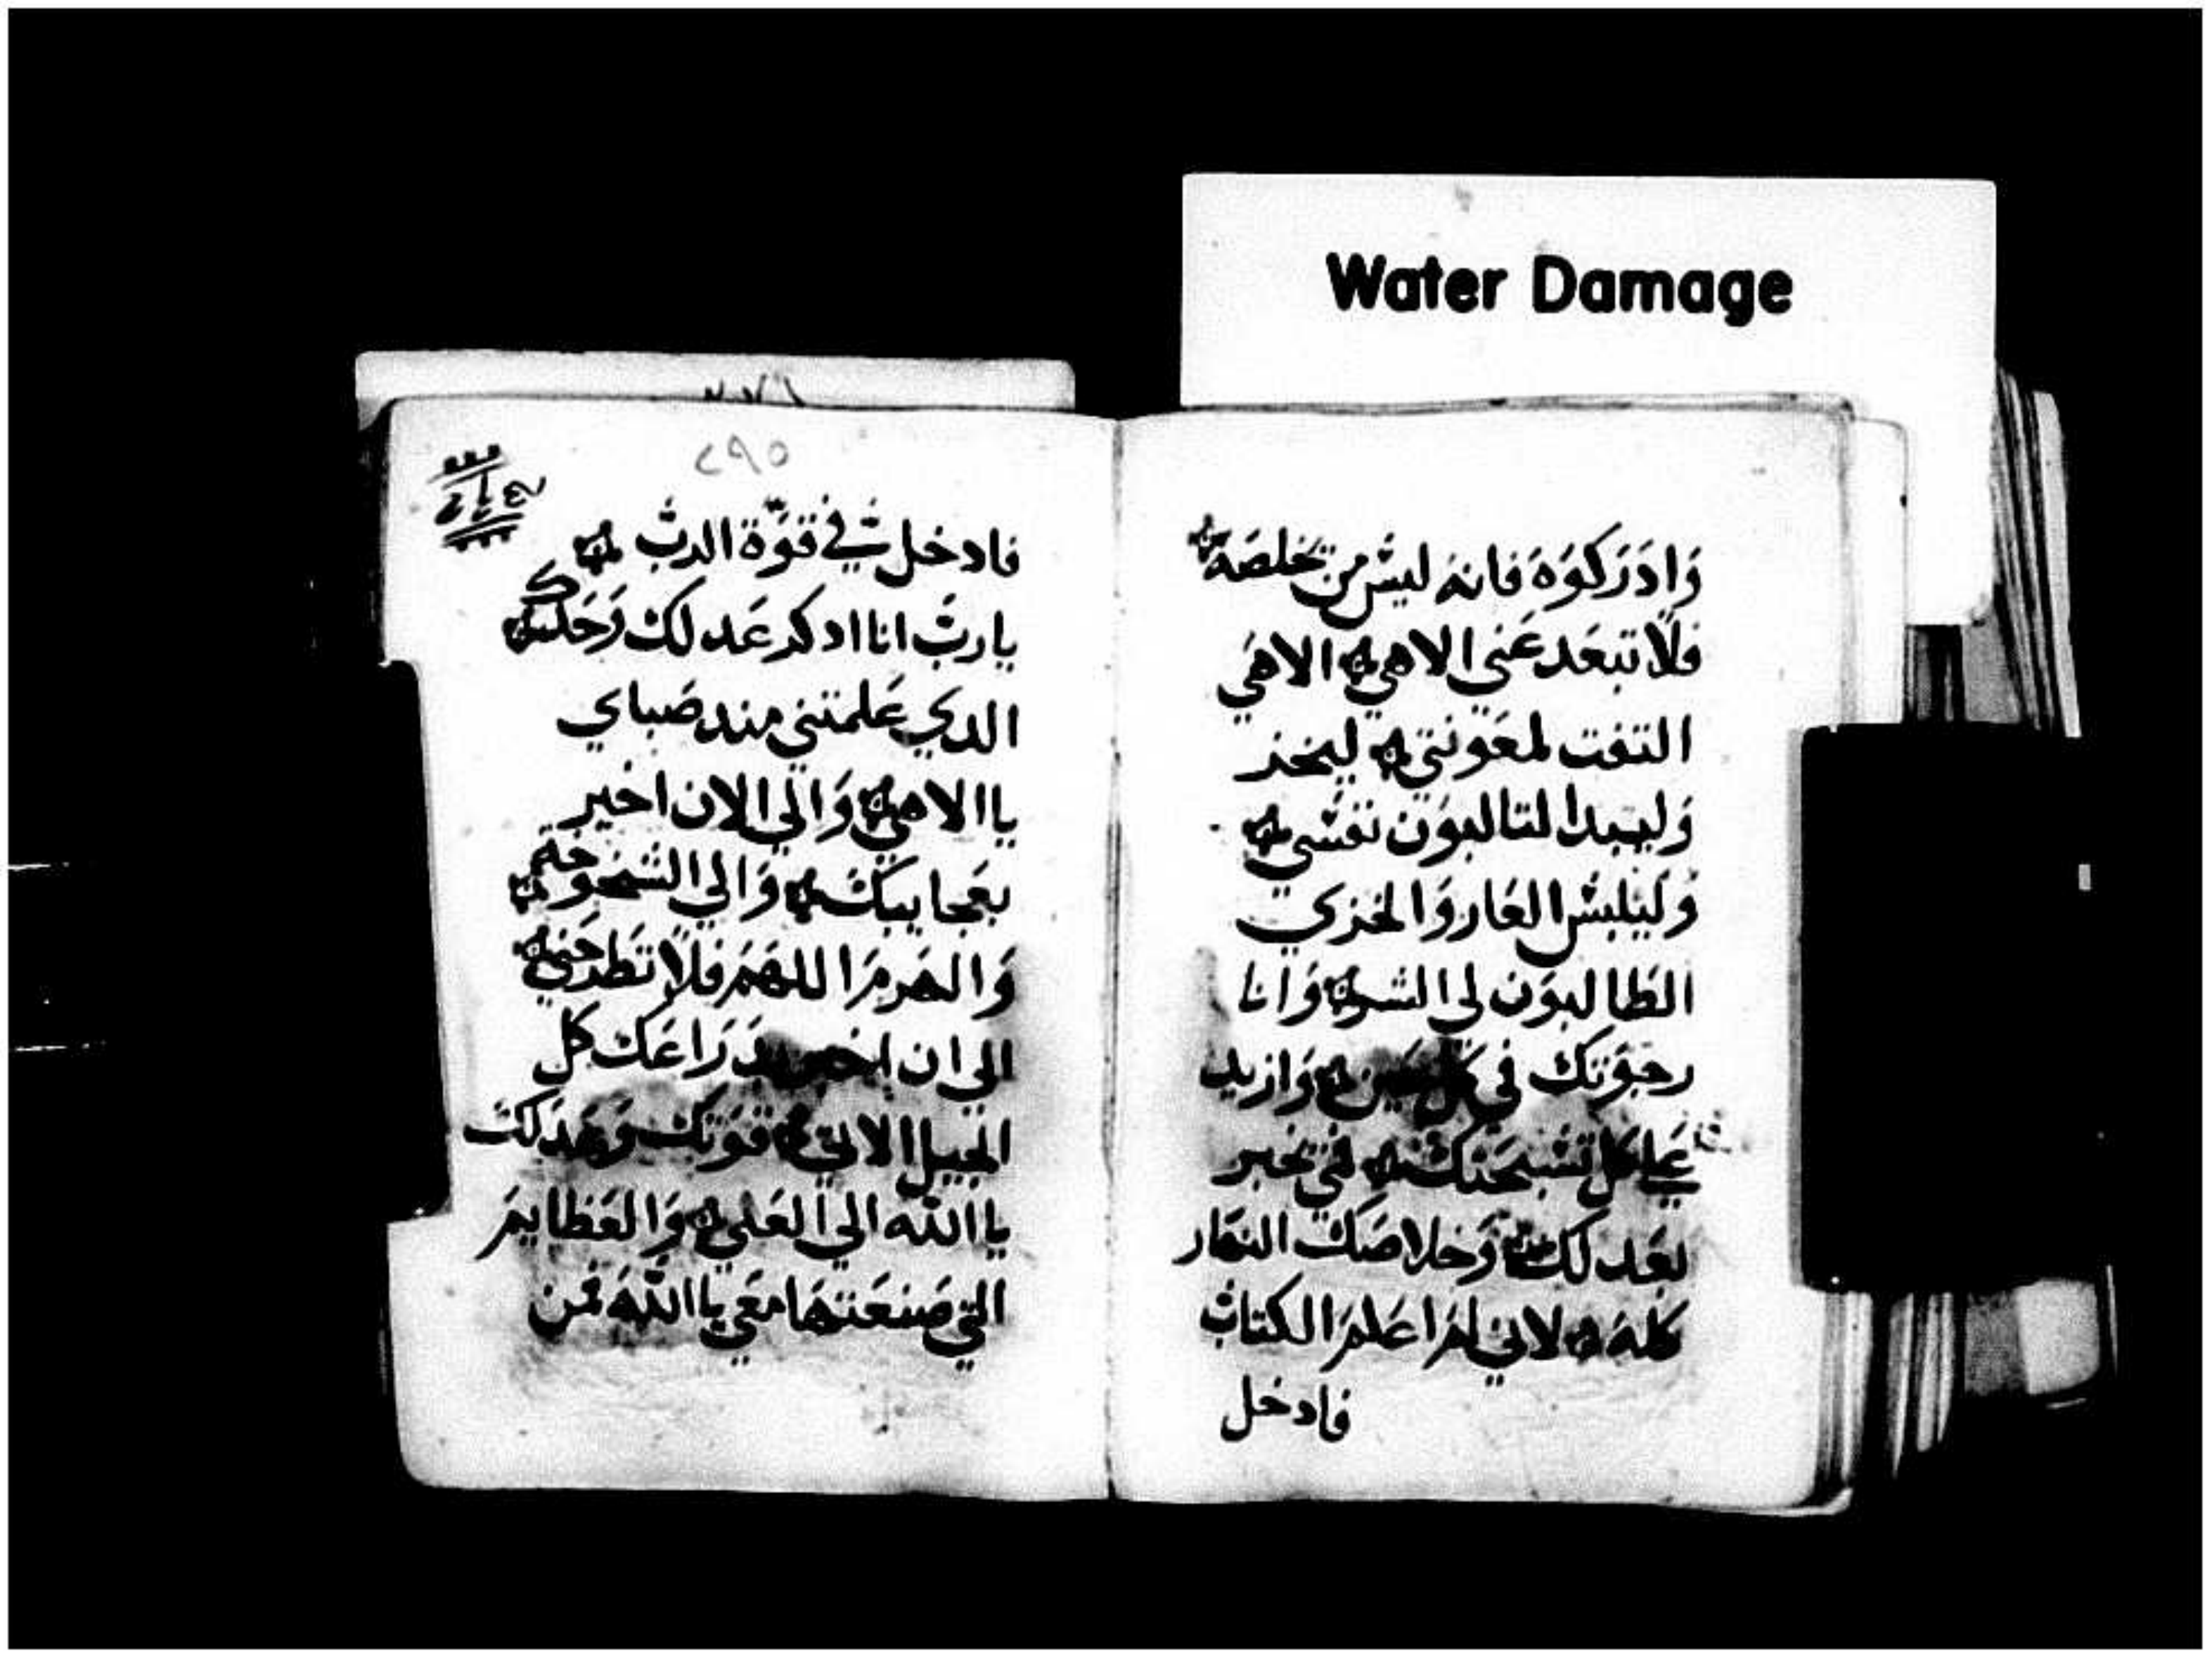 Water Damage
وَادَرَكوَه فانه ليسَ من يخلصَه
فلا تبعَد عَني الاهي الاهَي
التفت لمعَونتي ليخز
وَليبيدا لتالبوَن نفسَي
وَليلبسَ العَار وَالخزي
الطَالبوَن لي الشر وَانا
رجوَتك في كل حَين وَازيد
عَلي كل تسَبحَتك في يخبر
بعَد لك وَخلاصَك النهَار
كله لاني لمَ اعَلمَ الكتابَ
فادخل
٢٩٥
فادخل في قوَّة الربَ
يا ربَ انا ادكر عَد لك وَحَدك
الدي عَلمتني مند صَباي
يا الاهي وَالي الان اخبر
بعَجايبكَ وَالي الشيخوخة
وَالهَرمَ اللهَمَ فلا تطرَحَني
الي ان اخبر بدَرَاعَك كل
الجيل الاتي قوَتك وَعَدلكَ
يا الله الي العَلي وَالعَظايمَ
التي صَنعَتهَا معَي يا اللهَ فمن